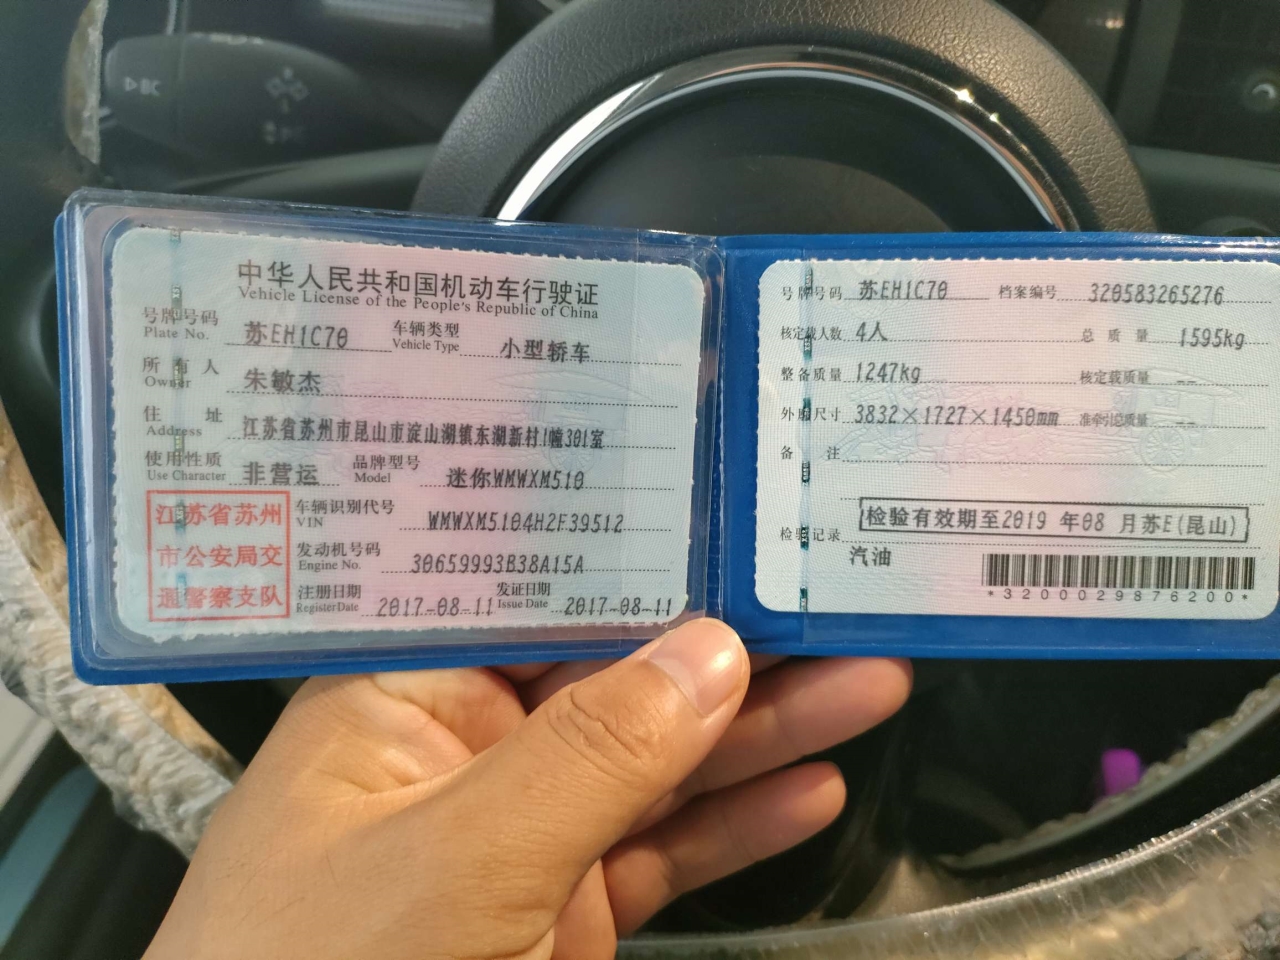 中华人民共和国机动车行驶证
Vehicle License of the People's Republic of China
号牌号码 苏EH1C70 车辆类型 小型轿车
Plate No. Vehicle Type
所有人 朱敏杰
Owner
住址 江苏省苏州市昆山市淀山湖镇东湖新村1幢301室
Address
使用性质 非营运 品牌型号 迷你WMWXM510
Use Character Model
江苏省苏州
市公安局交
通警察支队
车辆识别代号 WMWXM5104H2F39512
VIN
发动机号码 30659993B38A15A
Engine No.
注册日期 2017-08-11 发证日期 2017-08-11
Register Date Issue Date
号牌号码 苏EH1C70 档案编号 320583265276
核定载人数 4人 总质量 1595kg
整备质量 1247kg 核定载质量 --
外廓尺寸 3832×1727×1450mm 准牵引总质量 --
备注
检验记录 检验有效期至2019年08月苏E(昆山)
汽油
*3200029876200*